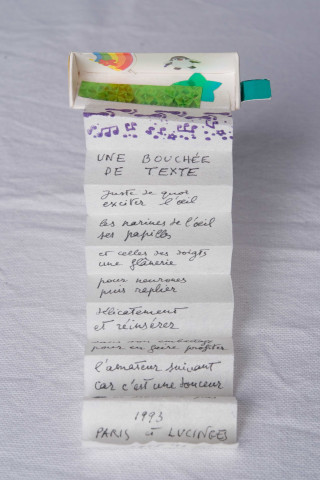 UNE BOUCHÉE
DE TEXTE
Juste de quoi
exciter l'oeil
les narines de l'oeil
ses papilles
et celles des doigts
une flânerie
pour neurones
puis replier
délicatement
et réinsérer
dans son emballage
pour en faire profiter
l'amateur suivant
car c'est une douceur
1993
PARIS à LUCINGES